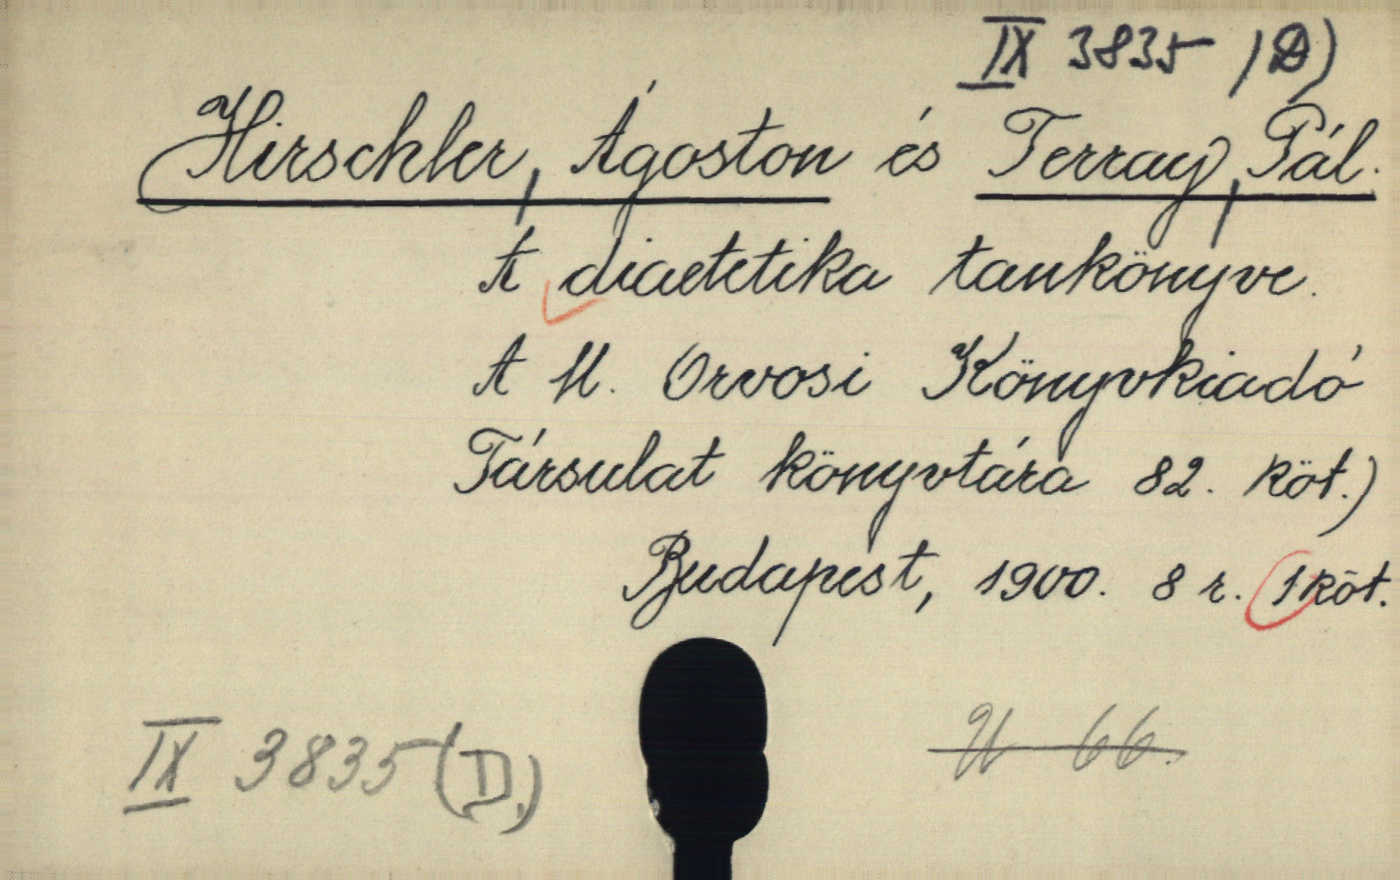 IX 3835 (D)
Hirschler, Ágoston és Terray, Pál.
A diaetetika tankönyve.
A M. Orvosi Könyvkiadó
Társulat könyvtára 82. köt.)
Budapest, 1900. 8 r. 1 köt.
IX 3835 (D.)
U 66.